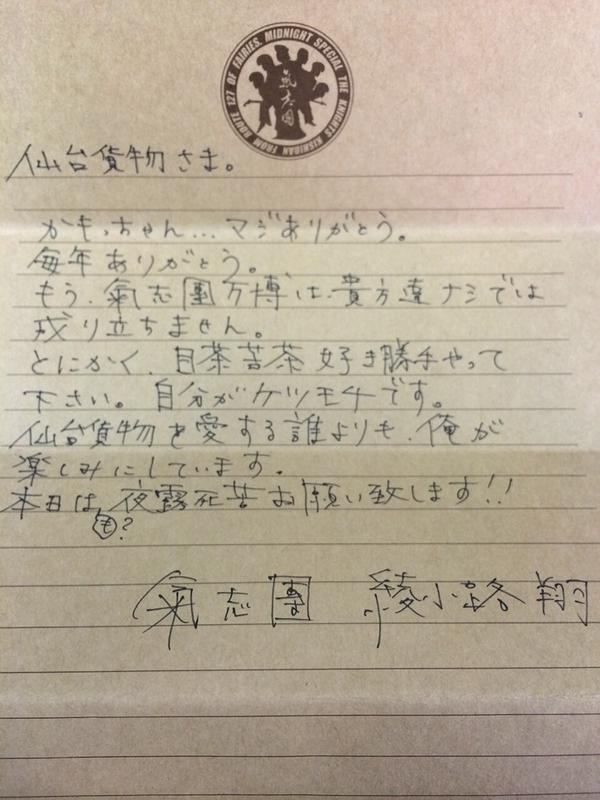 FROM ROUTE 127 OF FAIRIES. MIDNIGHT SPECIAL THE KNIGHTS KISHIDAN
氣志團
仙台貨物さま。
かもっちゃん…マジありがとう。
毎年ありがとう。
もう、氣志團万博は、貴方達ナシでは
成り立ちません。
とにかく、目茶苦茶好き勝手やって
下さい。自分がケツモチです。
仙台貨物を愛する誰よりも、俺が
楽しみにしています。
本日は夜露死苦お願い致します!!
も?
氣志團 綾小路翔